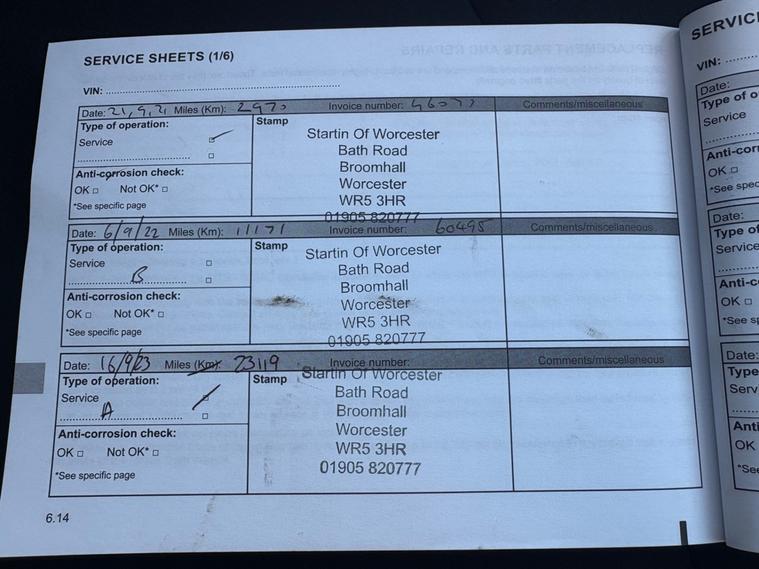 SERVICE SHEETS (1/6)
VIN:
Date: 21,9,21 Miles (Km): 2970 Invoice number: 46077 Comments/miscellaneous
Type of operation:
Service
Stamp
Startin Of Worcester
Bath Road
Broomhall
Worcester
WR5 3HR
01905 820777
Anti-corrosion check:
OK □ Not OK* □
*See specific page
Date: 6/9/22 Miles (Km): 11171 Invoice number: 60495 Comments/miscellaneous
Type of operation:
Service □
B □
Stamp
Startin Of Worcester
Bath Road
Broomhall
Worcester
WR5 3HR
01905 820777
Anti-corrosion check:
OK □ Not OK* □
*See specific page
Date: 16/9/23 Miles (Km): 23119 Invoice number: Comments/miscellaneous
Type of operation:
Service
A □
Stamp
Startin Of Worcester
Bath Road
Broomhall
Worcester
WR5 3HR
01905 820777
Anti-corrosion check:
OK □ Not OK* □
*See specific page
6.14
VIN:
Date:
Service
OK □
Date:
Service
OK □
Date:
OK